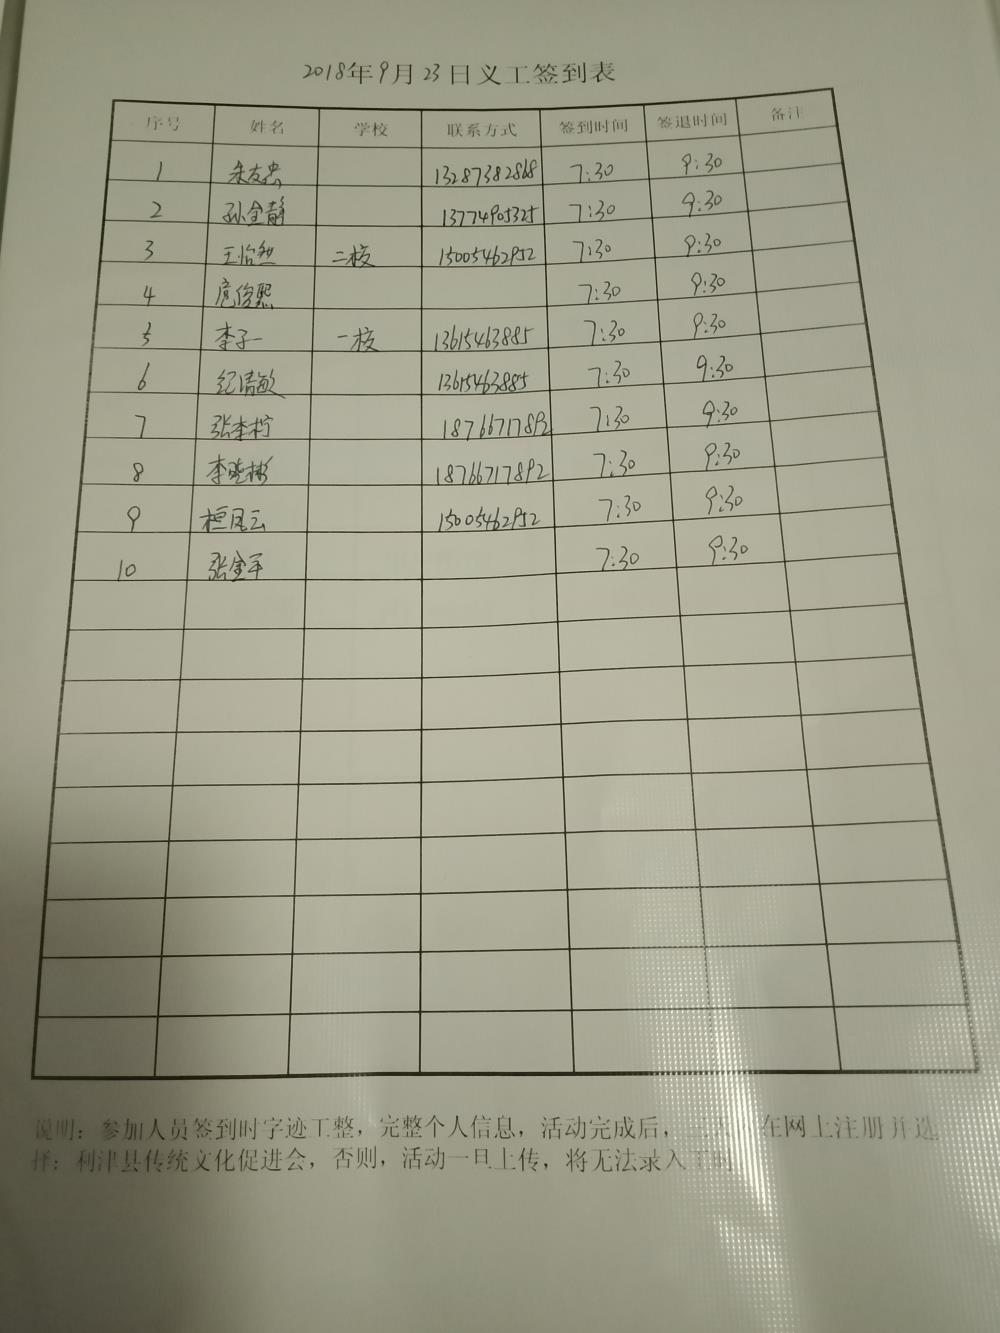 2018年9月23日义工签到表
序号 姓名 学校 联系方式 签到时间 签退时间 备注
1 朱友忠 13287382868 7:30 9:30
2 孙全静 13774905325 7:30 9:30
3 王怡然 二校 15005462952 7:30 9:30
4 扈俊熙 7:30 9:30
5 李子一 一校 13615463885 7:30 9:30
6 纪清敏 13615463885 7:30 9:30
7 张李柠 18766717892 7:30 9:30
8 李晓彬 18766717892 7:30 9:30
9 桓凤云 15005462952 7:30 9:30
10 张金平 7:30 9:30
说明：参加人员签到时字迹工整，完整个人信息，活动完成后， 在网上注册并选
择：利津县传统文化促进会，否则，活动一旦上传，将无法录入工时